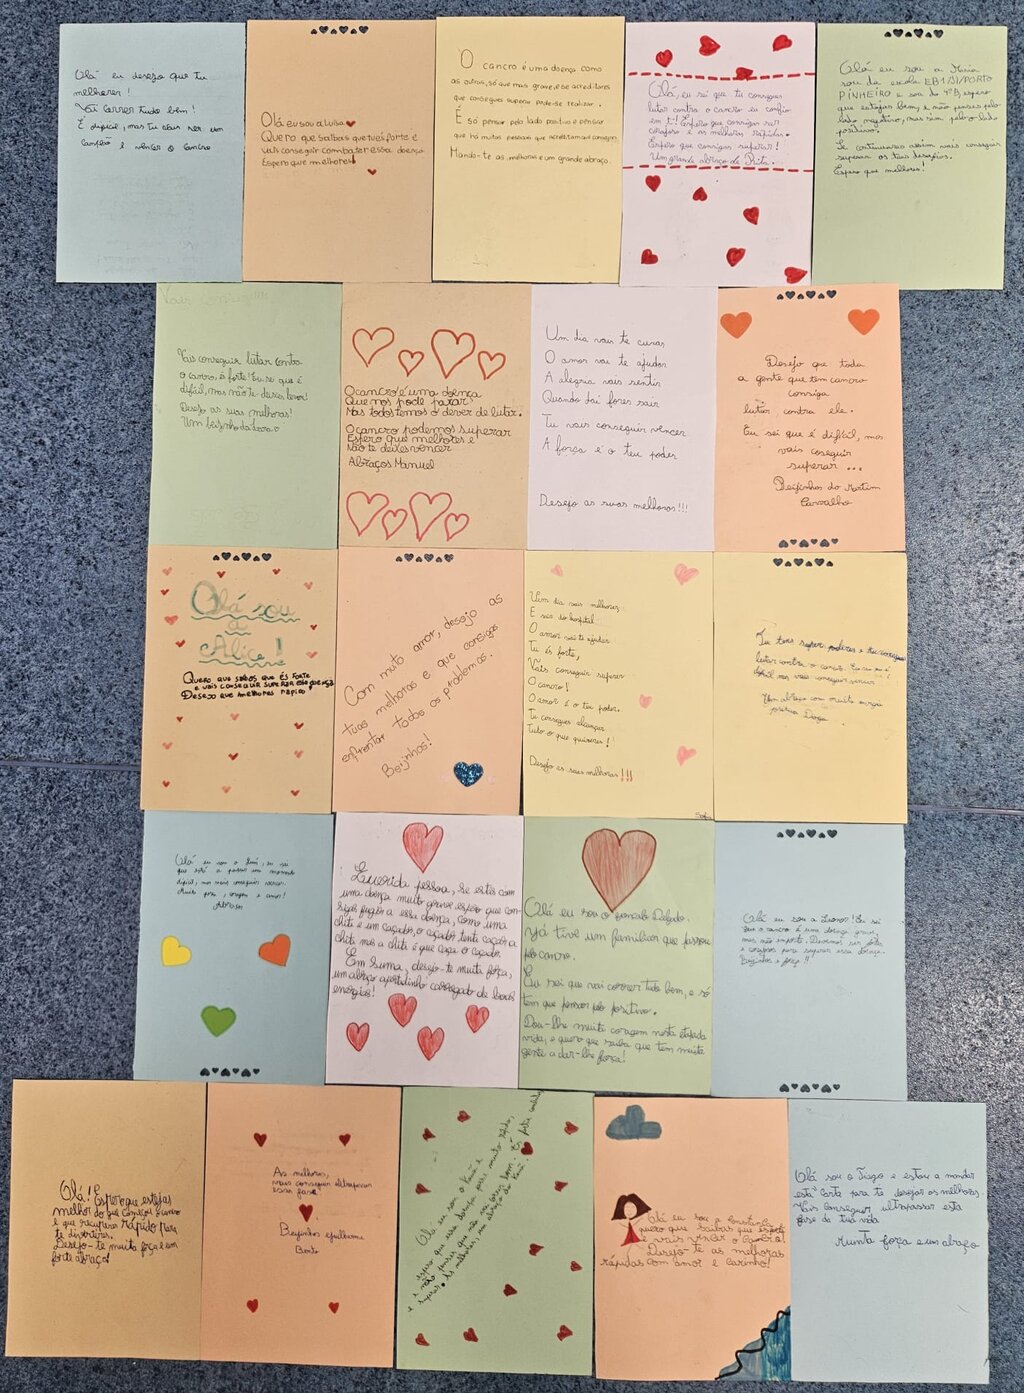 Olá eu desejo que tu
melhores!
Vai correr tudo bem!
É difícil, mas tu vais ser um
campeão e vencer o cancro
Olá eu sou a Luísa
Quero que saibas que tu és forte e
vais conseguir combater essa doença
Espero que melhores!
O cancro é uma doença como
as outras, só que mais grave, e se acreditares
que consegues superar pode-se realizar.
É só pensar pelo lado positivo e pensar
que há muitas pessoas que acreditam
Mando-te as melhoras e um grande abraço.
Olá, eu sei que tu consegues
lutar contra o cancro eu confio
em ti! Espero que consigas ser
corajoso e as melhoras rápidas.
Espero que consigas superar!
Um grande abraço de Rita.
Olá eu sou a Maria
sou da escola EB1/JI/PORTO
PINHEIRO e sou do 4ºB, espero
que estejas bem, e não penses pelo
lado negativo, mas sim pelo lado
positivo.
Se continuares assim vais conseguir
superar os teus desafios.
Espero que melhores!
Vais conseguir lutar contra
o cancro, é forte! Eu sei que é
difícil, mas não te deixes levar!
Desejo as suas melhoras!
Um beijinho da
O cancro é uma doença
Que nos pode parar
Mas todos temos o dever de lutar.
O cancro podemos superar
Espero que melhores e
Não te deites vencer
Abraços Manuel
Um dia vais te curar
O amor vai te ajudar
A alegria vais sentir
Quando daí fores sair
Tu vais conseguir vencer
A força é o teu poder
Desejo as suas melhoras!!!
Desejo que toda
a gente que tem cancro
consiga
lutar, contra ele.
Eu sei que é difícil, mas
vais coseguir
superar ...
Beijinhos do Martim
Carvalho
Olá sou
a
Alice!
Quero que saibas que és forte
e vais conseguir superar essa doença
Desejo que melhores rápido
Com muito amor, desejo as
tuas melhoras e que consigas
enfrentar todos os problemas.
Beijinhos!
Um dia vais melhorar,
E sair do hospital
O amor vai te ajudar
Tu és forte,
Vais conseguir superar
O cancro!
O amor é o teu poder.
Tu consegues alcançar
Tudo o que quiseres!
Desejo as suas melhoras!!!
Tu tens super poderes e tu consegues
lutar contra o cancro. Eu sei que é
difícil mas vais conseguir vencer
Um abraço com muita energia
positiva Diogo
Olá eu sou o
que está a passar um momento
difícil, mas vais conseguir vencer.
Muita força, coragem e amor!
Abraço
Querida pessoa, se estás com
uma doença muito grave espero que con-
sigas fugir a essa doença, como uma
chita e um caçador, o caçador tenta caçar a
chita mas a chita é que caça o caçador.
Em suma, desejo-te muita força,
um abraço apertadinho carregado de boas
energias!
Olá eu sou o Gonçalo Delgado.
Já tive um familiar que passou
pelo cancro.
Eu sei que vai correr tudo bem, e só
tem que pensar pelo positivo.
Dou-lhe muita coragem nesta etapa da
vida, e quero que saiba que tem muita
gente a dar-lhe força!
Olá eu sou a Leonor! Eu sei
que o cancro é uma doença grave,
mas não importa. Devemos ser fortes
e corajosos para superar essa doença.
Beijinhos e força!!
Olá! Espero que estejas
melhor do que começou o cancro
e que recuperes rápido para
te divertires.
Desejo-te muita força e um
forte abraço!
As melhoras,
vais conseguir ultrapassar
essa fase!
Beijinhos Guilherme
Bento
Olá eu sou o
espero que essa doença passe muito rápido,
e não penses que não vai correr bem. És forte
superar. As melhoras, um abraço do
Olá eu sou a Constança
quero que saibas que és forte
e vais vencer o cancro!
Desejo-te as melhoras
rápidas com amor e carinho!
Olá sou o Tiago e estou a mandar
esta carta para te desejar as melhoras
Vais conseguir ultrapassar esta
fase da tua vida
Muita força e um abraço